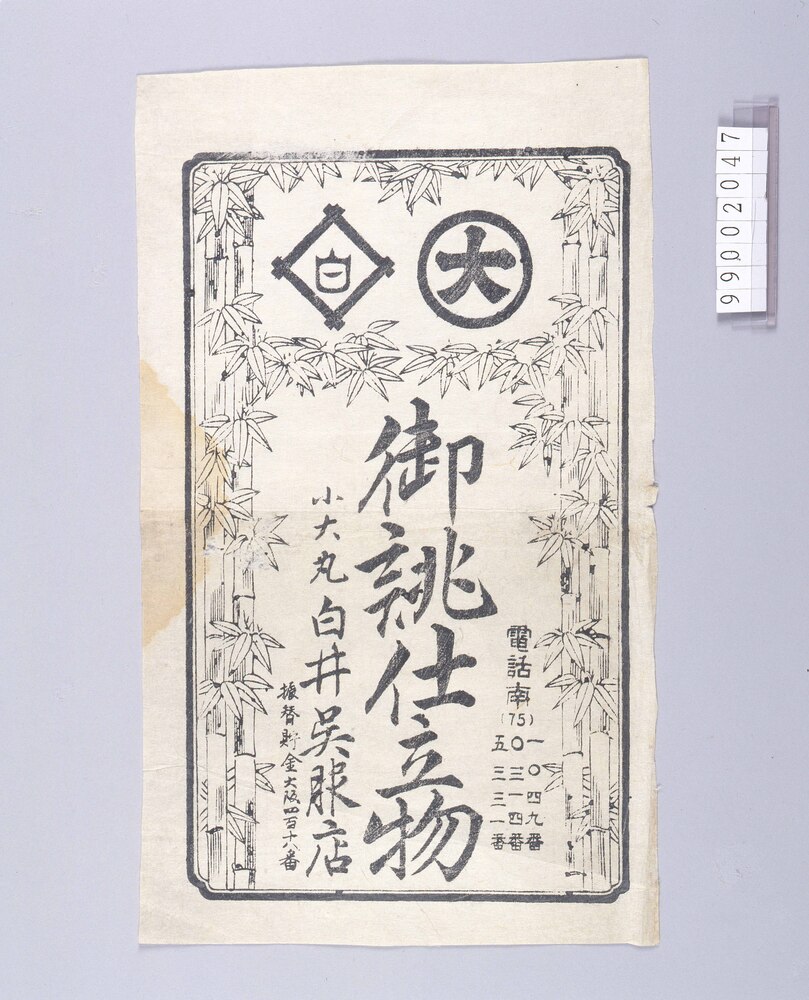 大
白
電話南(75)
一〇四九番
〇三一四番
五三三一番
御誂仕立物
小大丸 白井呉服店
振替貯金大阪四百十八番
99002047